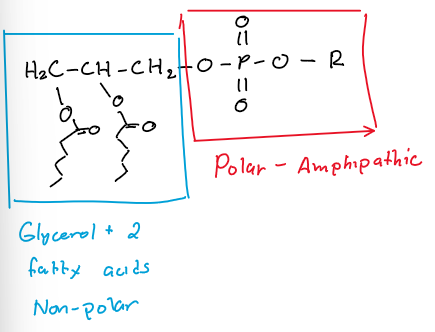 O
H₂C-CH-CH₂-O-P-O-R
O O
O O O
Polar - Amphipathic
Glycerol + 2
fatty acids
Non-polar